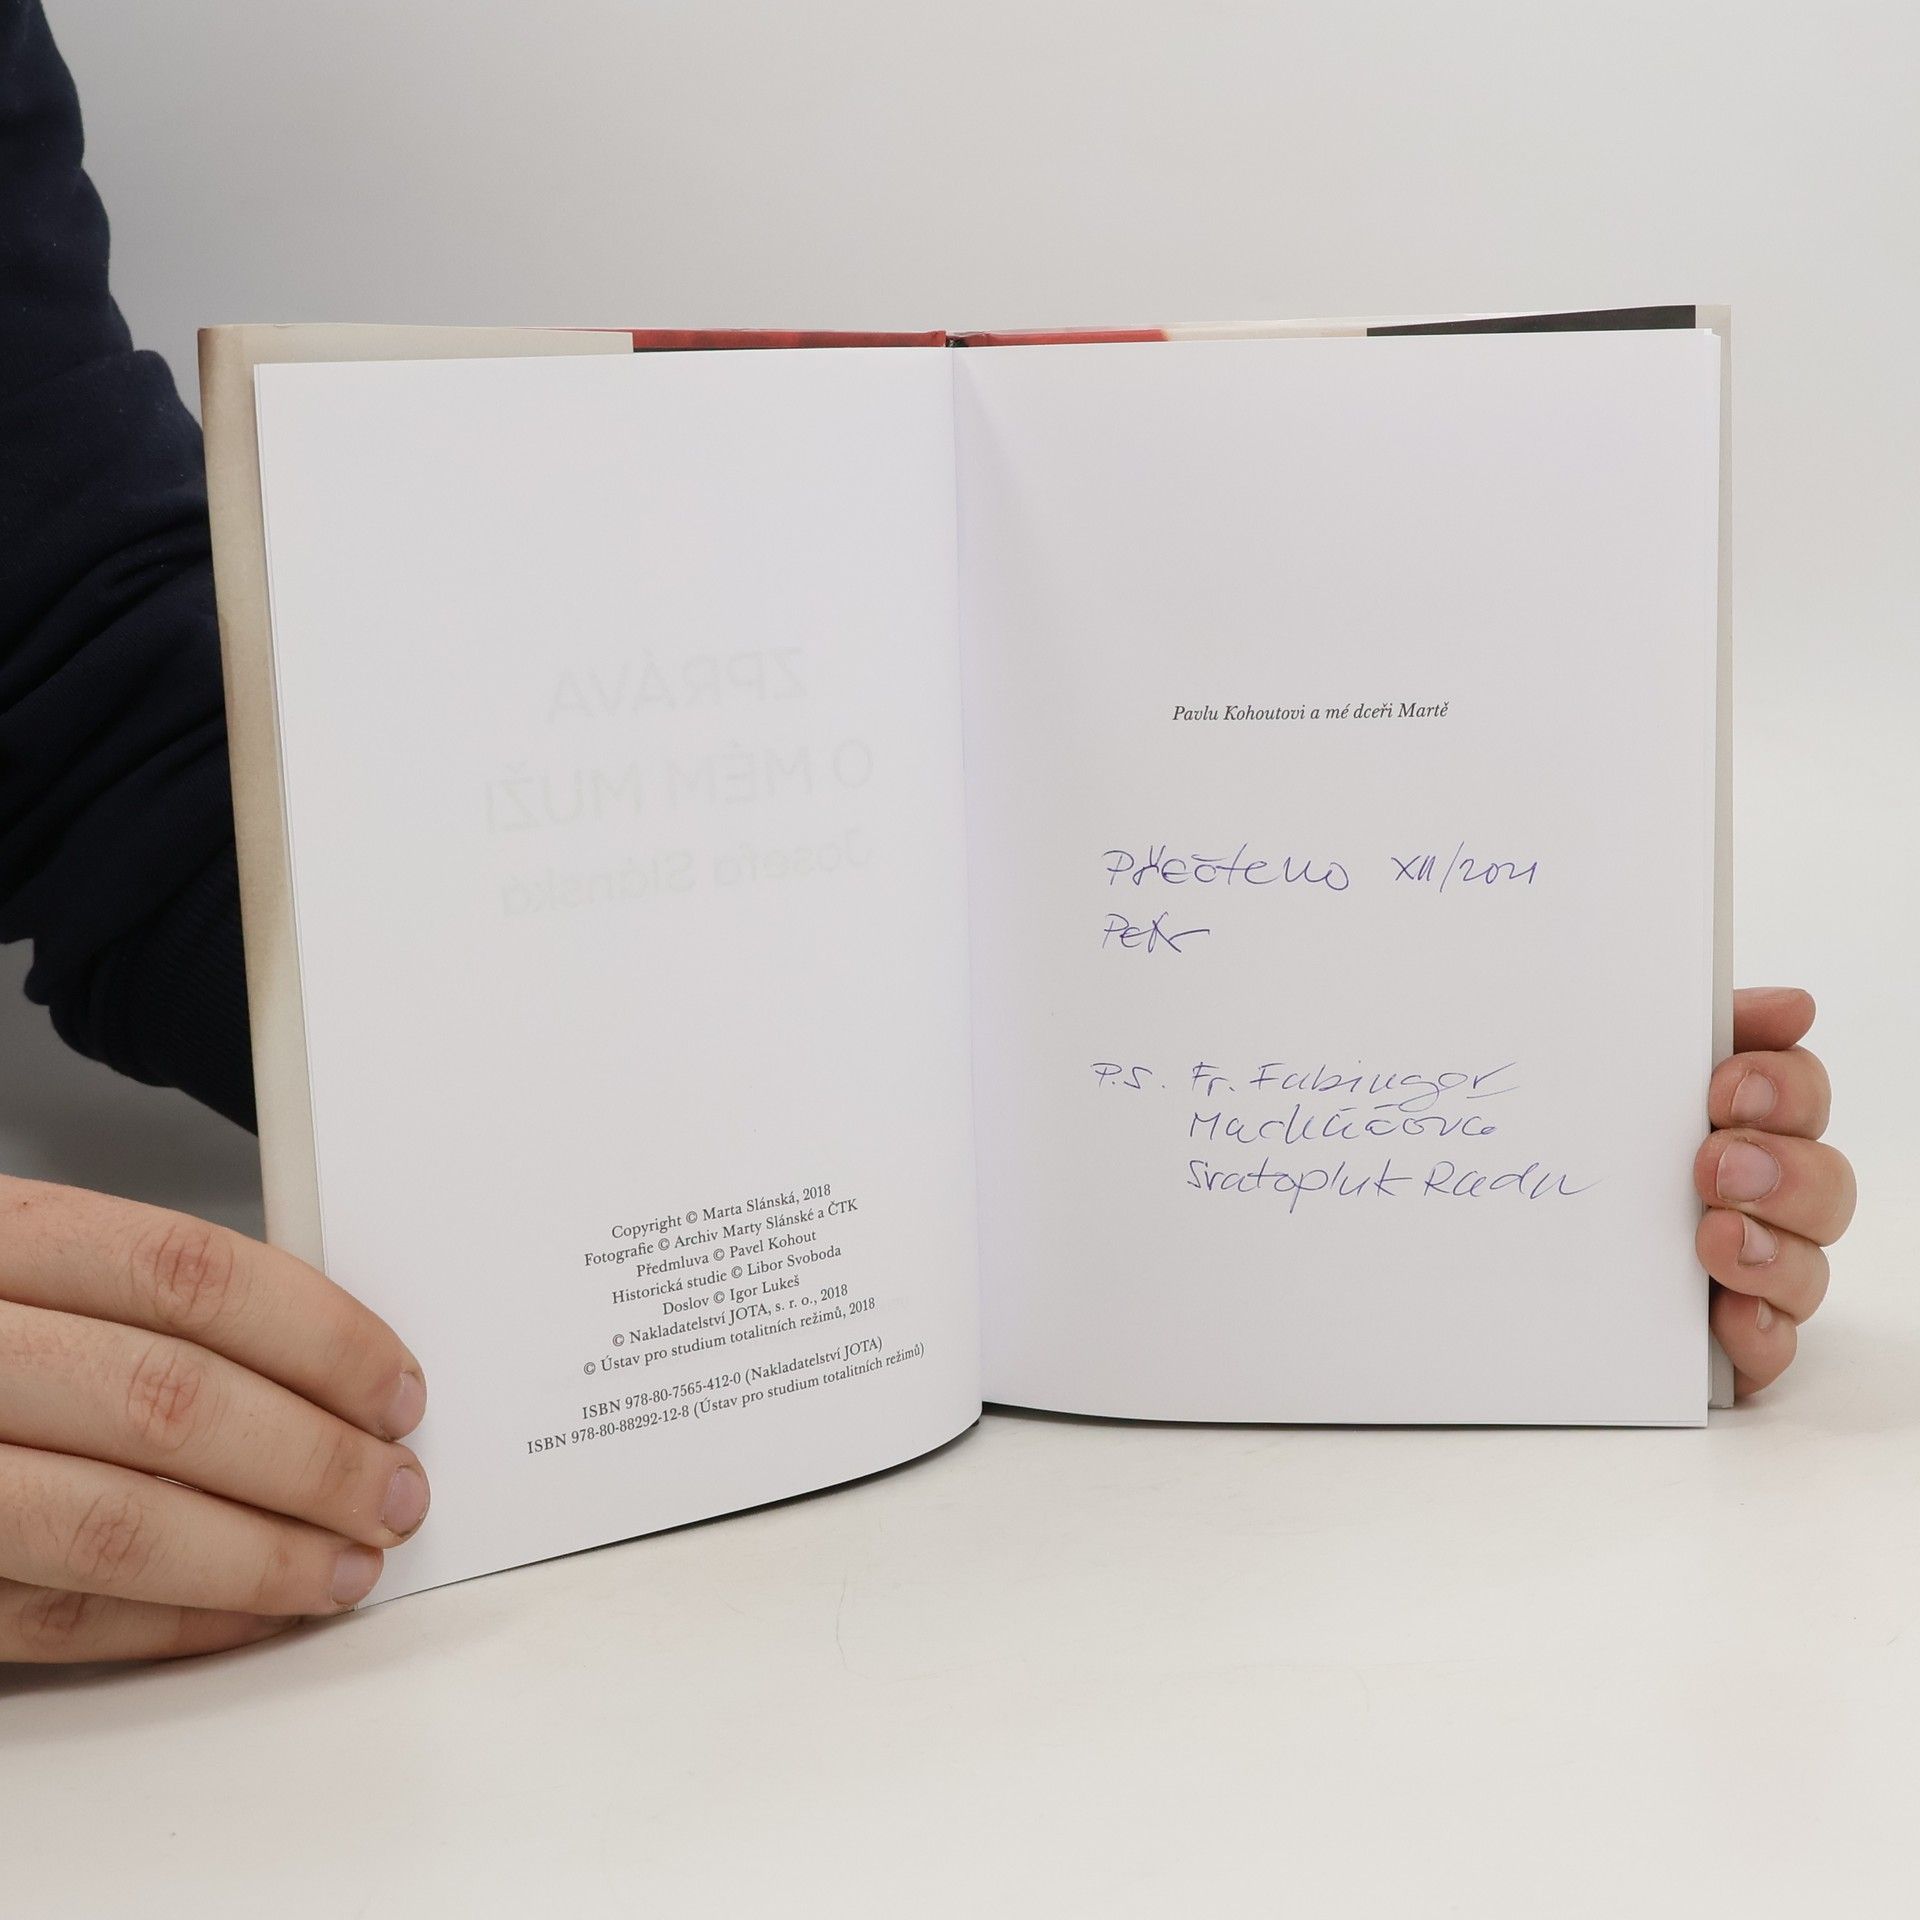 ZPRÁVA
O MÉM MUŽI
Josefa Slánská
Copyright © Marta Slánská, 2018
Fotografie © Archiv Marty Slánské a ČTK
Předmluva © Pavel Kohout
Historická studie © Libor Svoboda
Doslov © Igor Lukeš
© Nakladatelství JOTA, s. r. o., 2018
© Ústav pro studium totalitních režimů, 2018
ISBN 978-80-7565-412-0 (Nakladatelství JOTA)
ISBN 978-80-88292-12-8 (Ústav pro studium totalitních režimů)
Pavlu Kohoutovi a mé dceři Martě
Přečteno XII/2021
Petr
P.S. Fr. Fabinger
Svatopluk Radu